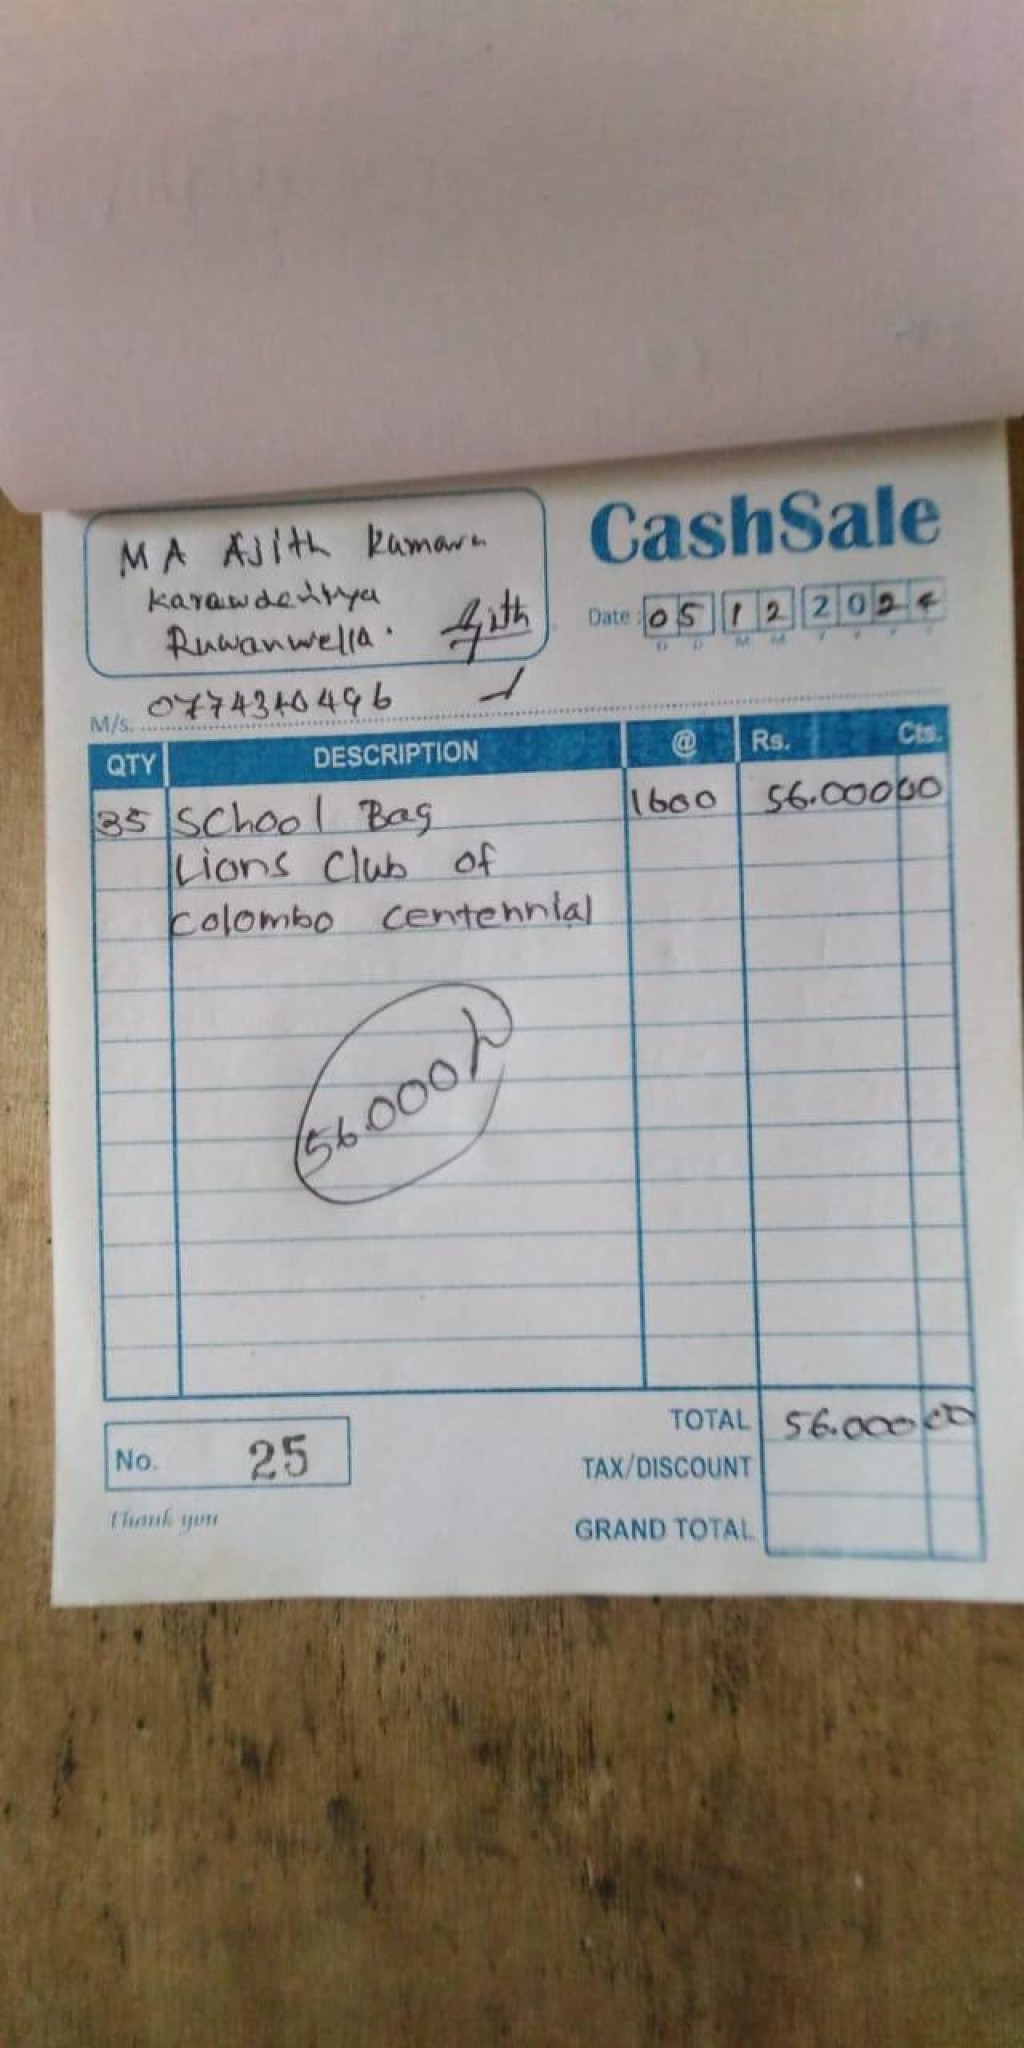 M A Ajith Kumara
Ruwanwella.
Ajith
CashSale
Date: 05 12 2024
D D M M Y Y Y Y
M/s. 0774340496
QTY DESCRIPTION @ Rs. Cts.
35 School Bag 1600 56.000 00
Lions Club of
Colombo Centennial
56.000
TOTAL 56.000 00
No. 25
TAX/DISCOUNT
Thank you
GRAND TOTAL